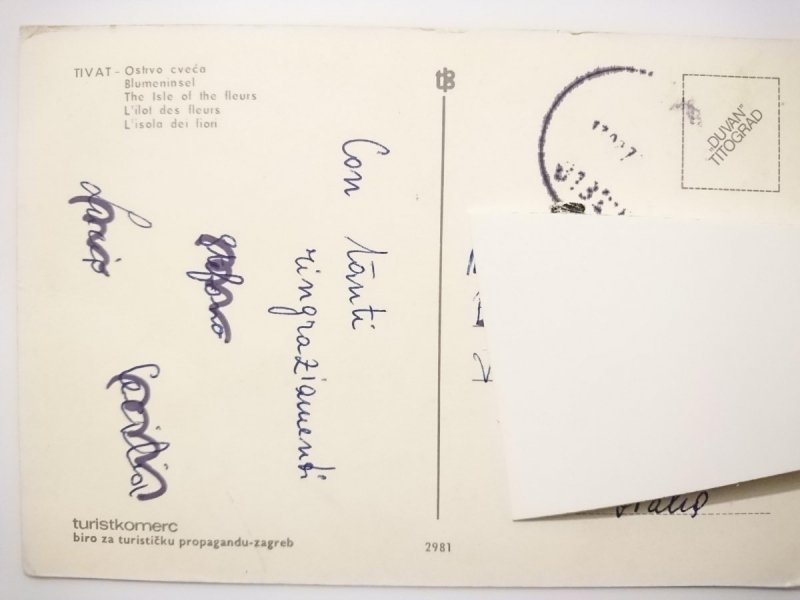 TIVAT - Ostrvo cveća
Blumeninsel
The Isle of the fleurs
L'ilot des fleurs
L'isola dei fiori
Con tanti
ringraziamenti
Stefano
Cecilia
„DUVAN"
TITOGRAD
Italia
turistkomerc
biro za turističku propagandu-zagreb
2981